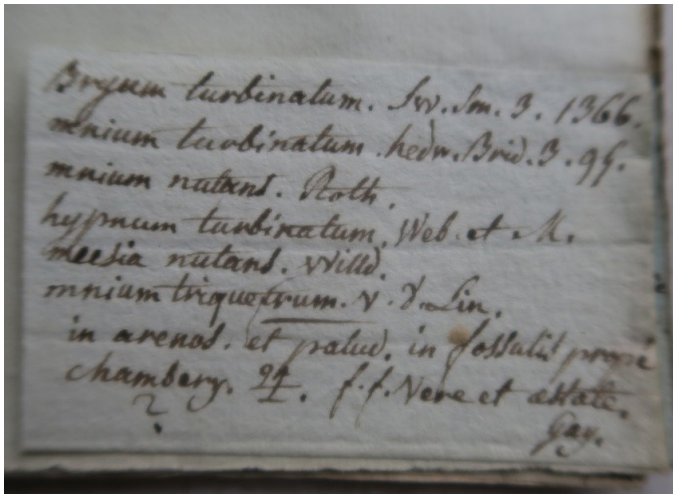 Bryum turbinatum. Sw. Sm. 3. 1366.
mnium turbinatum. hedw. Brid. 3. 95.
mnium nutans. Roth.
hypnum turbinatum. Web. et M.
meesia nutans. Willd.
mnium triquetrum. v. γ. Lin.
in arenos. et palud. in fossulis prope
chambery. ♃. f.f. Vere et æstate.
?
Gay.